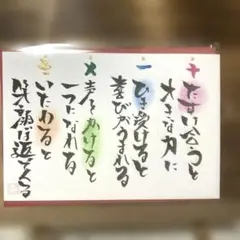 +
たすけ合うと
大きな力に
一
ひき受けると
喜びがうまれる
×
声をかけると
一つになれる
÷
いたわると
笑顔は返ってくる